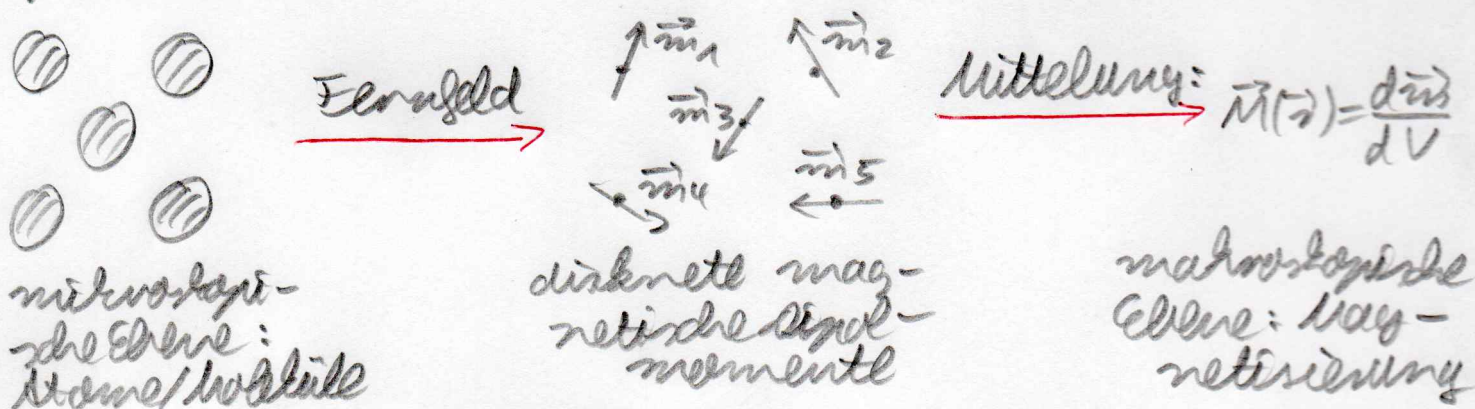 Fernfeld
m⃗1
m⃗2
m⃗3
m⃗4
m⃗5
Mittelung:
M⃗(r⃗)=dm⃗/dV
mikroskopi-
sche Ebene:
Atome/Moleküle
diskrete mag-
netische Dipol-
momente
makroskopische
Ebene: Mag-
netisierung